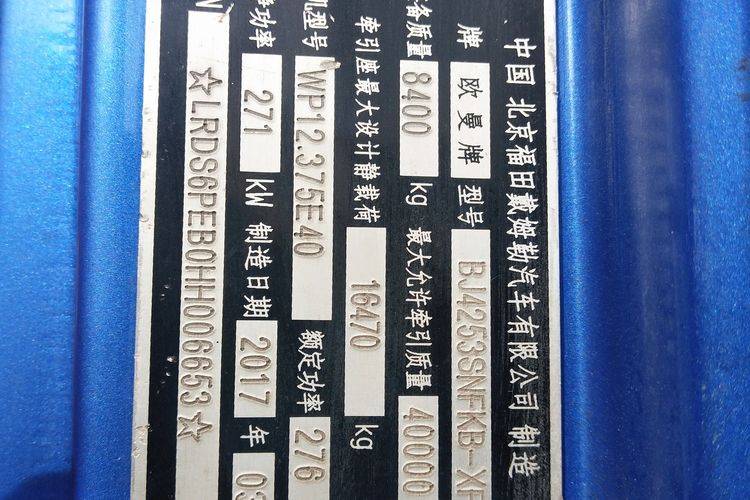 中国 北京福田戴姆勒汽车有限公司 制造
牌 欧曼牌 型号 BJ4253SNFKB-XF
备质量 8400 kg 最大允许牵引质量 40000
牵引座最大设计静载荷 16470 kg
机型号 WP12.375E40 额定功率 276
净功率 271 kW 制造日期 2017 年 03
N ☆LRDS6PEB0HH006653☆